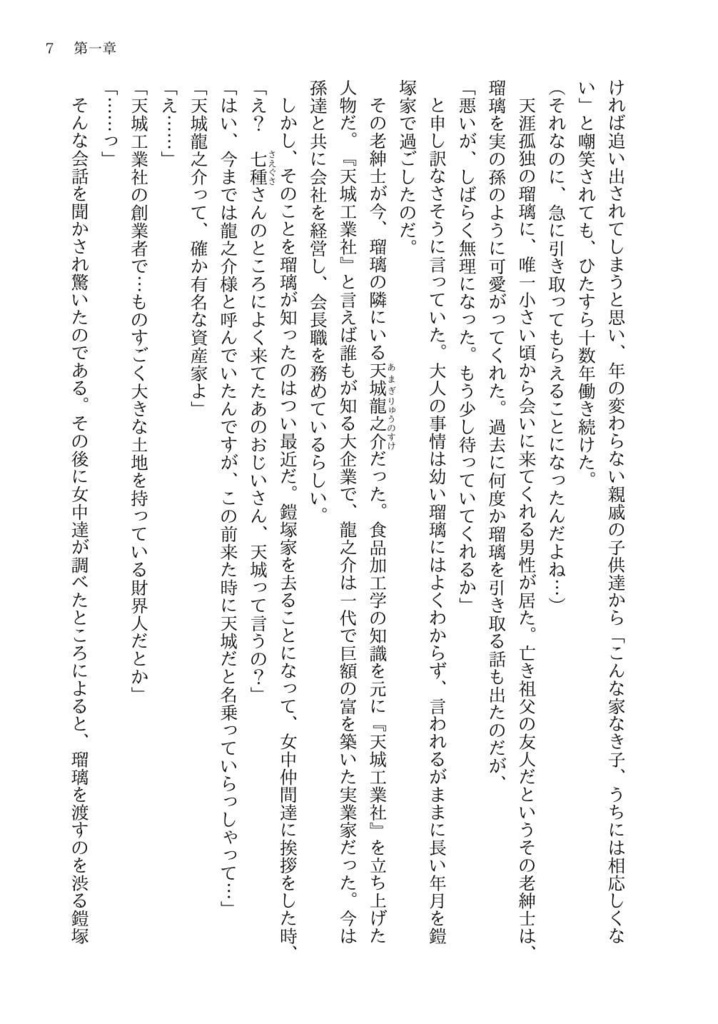 7　第一章
ければ追い出されてしまうと思い、年の変わらない親戚の子供達から「こんな家なき子、うちには相応しくな
い」と嘲笑されても、ひたすら十数年働き続けた。
（それなのに、急に引き取ってもらえることになったんだよね…）
　天涯孤独の瑠璃に、唯一小さい頃から会いに来てくれる男性が居た。亡き祖父の友人だというその老紳士は、
瑠璃を実の孫のように可愛がってくれた。過去に何度か瑠璃を引き取る話も出たのだが、
「悪いが、しばらく無理になった。もう少し待っていてくれるか」
　と申し訳なさそうに言っていた。大人の事情は幼い瑠璃にはよくわからず、言われるがままに長い年月を鎧
塚家で過ごしたのだ。
　その老紳士が今、瑠璃の隣にいる天城龍之介だった。食品加工学の知識を元に『天城工業社』を立ち上げた
あまぎりゅうのすけ
人物だ。『天城工業社』と言えば誰もが知る大企業で、龍之介は一代で巨額の富を築いた実業家だった。今は
孫達と共に会社を経営し、会長職を務めているらしい。
　しかし、そのことを瑠璃が知ったのはつい最近だ。鎧塚家を去ることになって、女中仲間達に挨拶をした時、
「え？　七種さんのところによく来てたあのおじいさん、天城って言うの？」
さえぐさ
「はい、今までは龍之介様と呼んでいたんですが、この前来た時に天城だと名乗っていらっしゃって…」
「天城龍之介って、確か有名な資産家よ」
「え……」
「天城工業社の創業者で…ものすごく大きな土地を持っている財界人だとか」
「……っ」
　そんな会話を聞かされ驚いたのである。その後に女中達が調べたところによると、瑠璃を渡すのを渋る鎧塚